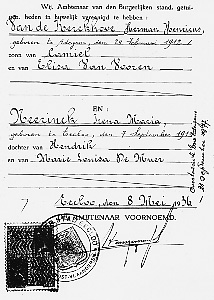 Wij, Ambtenaar van den Burgerlijken stand, getui-
gen, heden in huwelijk vereenigd te hebben:
Van de Kerckhove Herman Henricus,
geboren te Adegem den 24 Februari 1912
zoon van Camiel
en van Elisa Van Vooren
EN:
Neerinck Irena Maria,
geboren te Eecloo, den 7 September 1912
dochter van Hendrik
en van Marie Louisa De Muer
Eecloo, den 8 Mei 1936
DE AMBTENAAR VOORNOEMD.